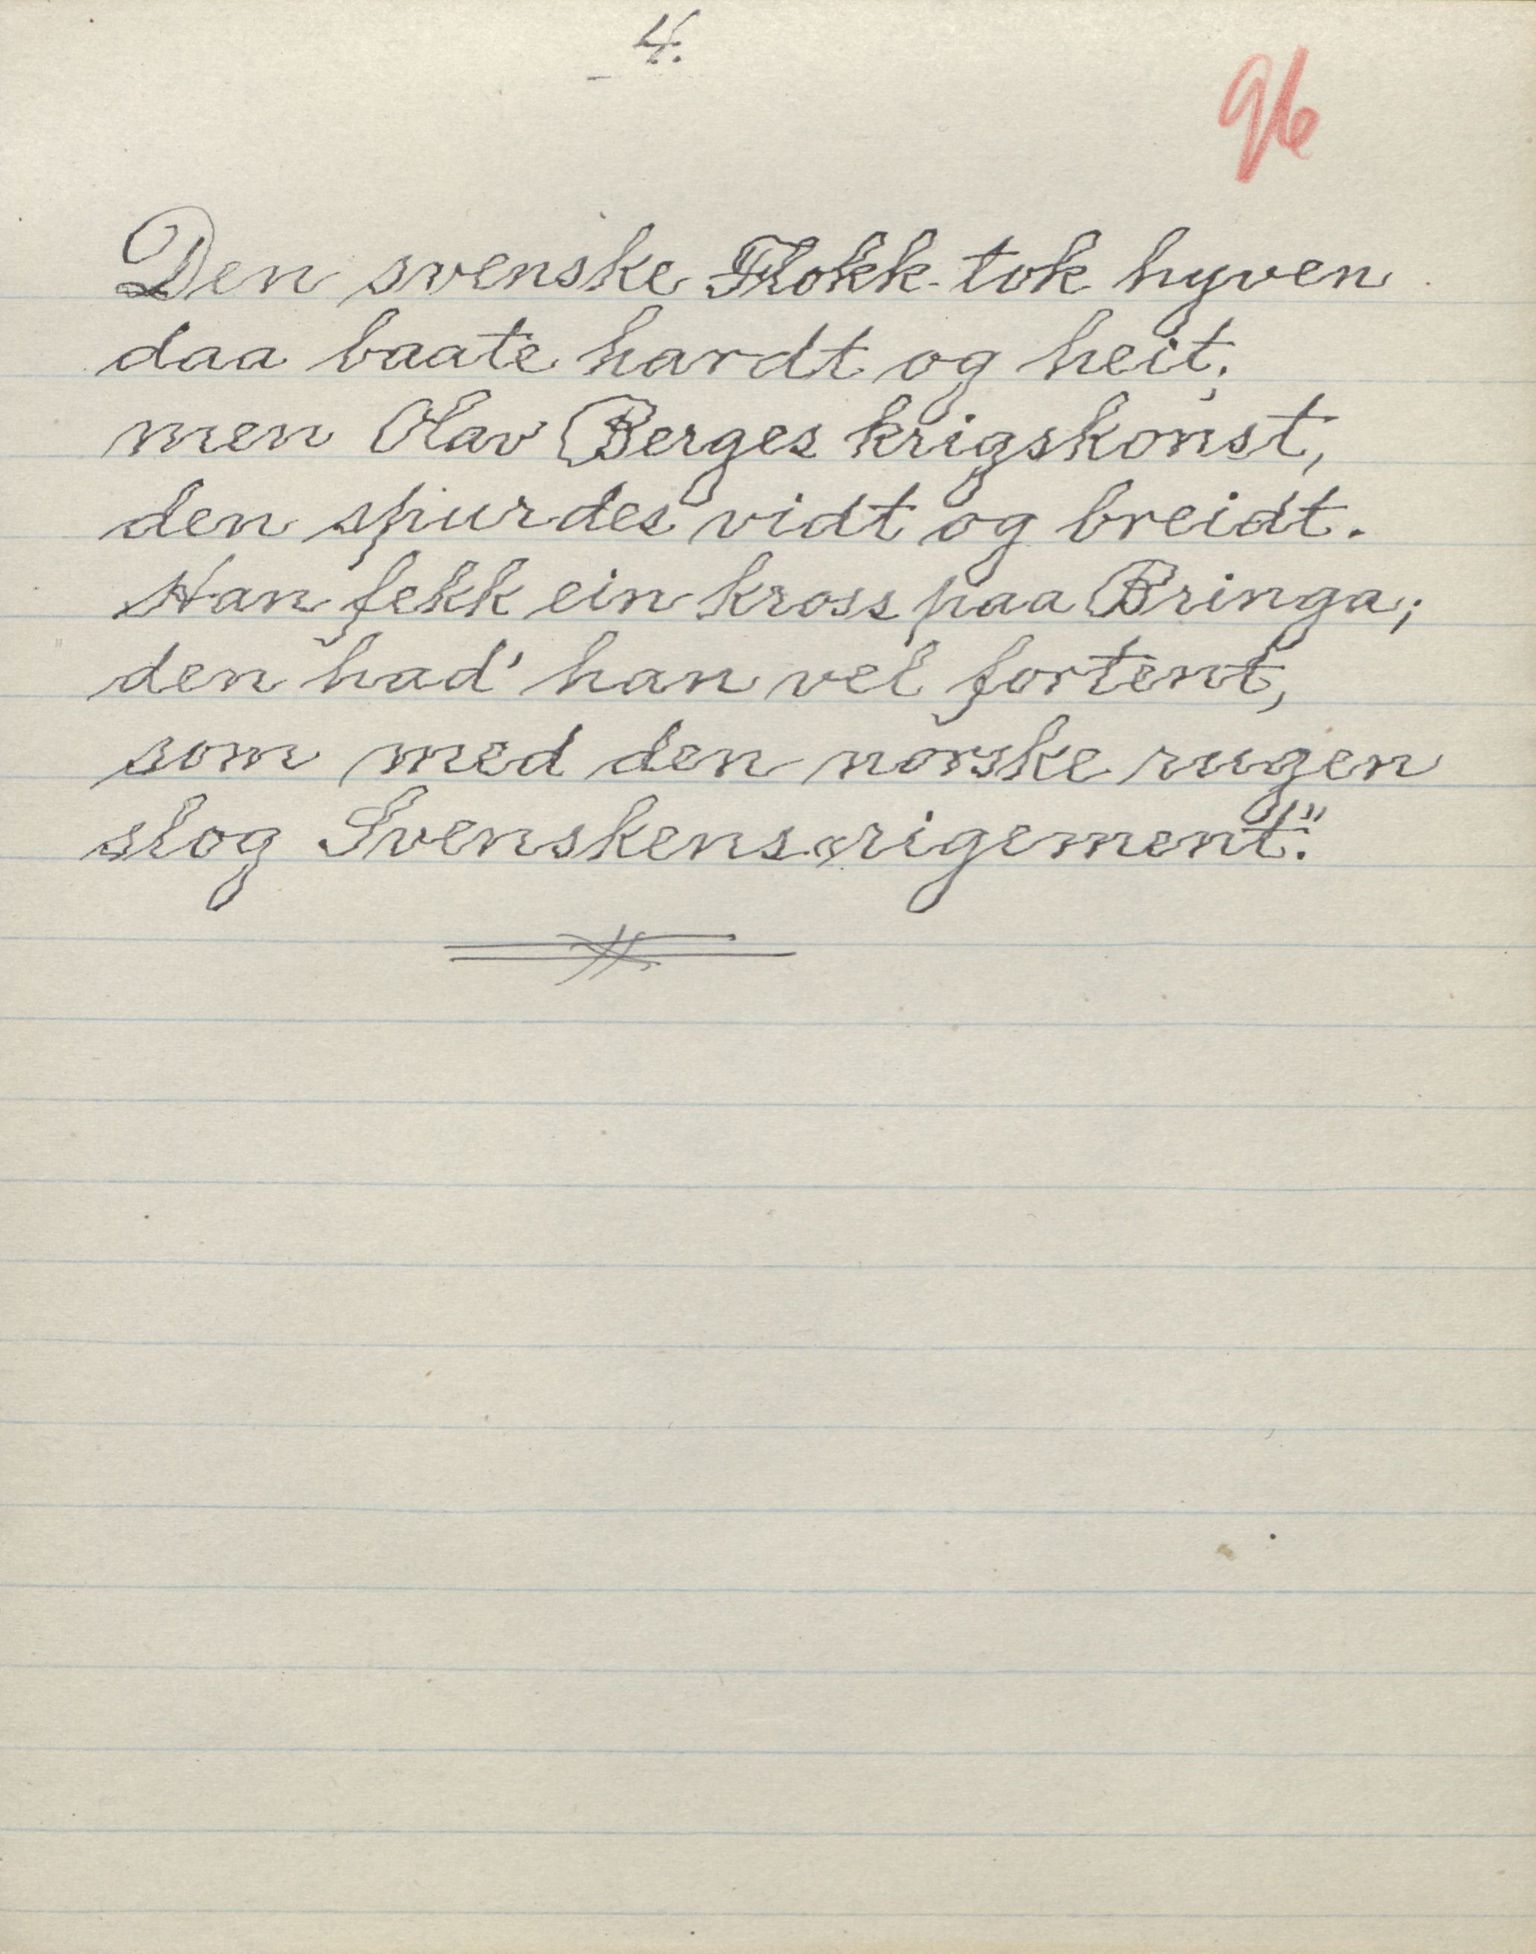 4.
96
Den svenske Flokk tok hyven
daa baate hardt og heit;
men Olav Berges krigskonst,
den spurdes vidt og breidt.
Han fekk ein kross paa Bringa;
den had' han vel fortent,
som med den norske rugen
slog Svenskens „rigement".